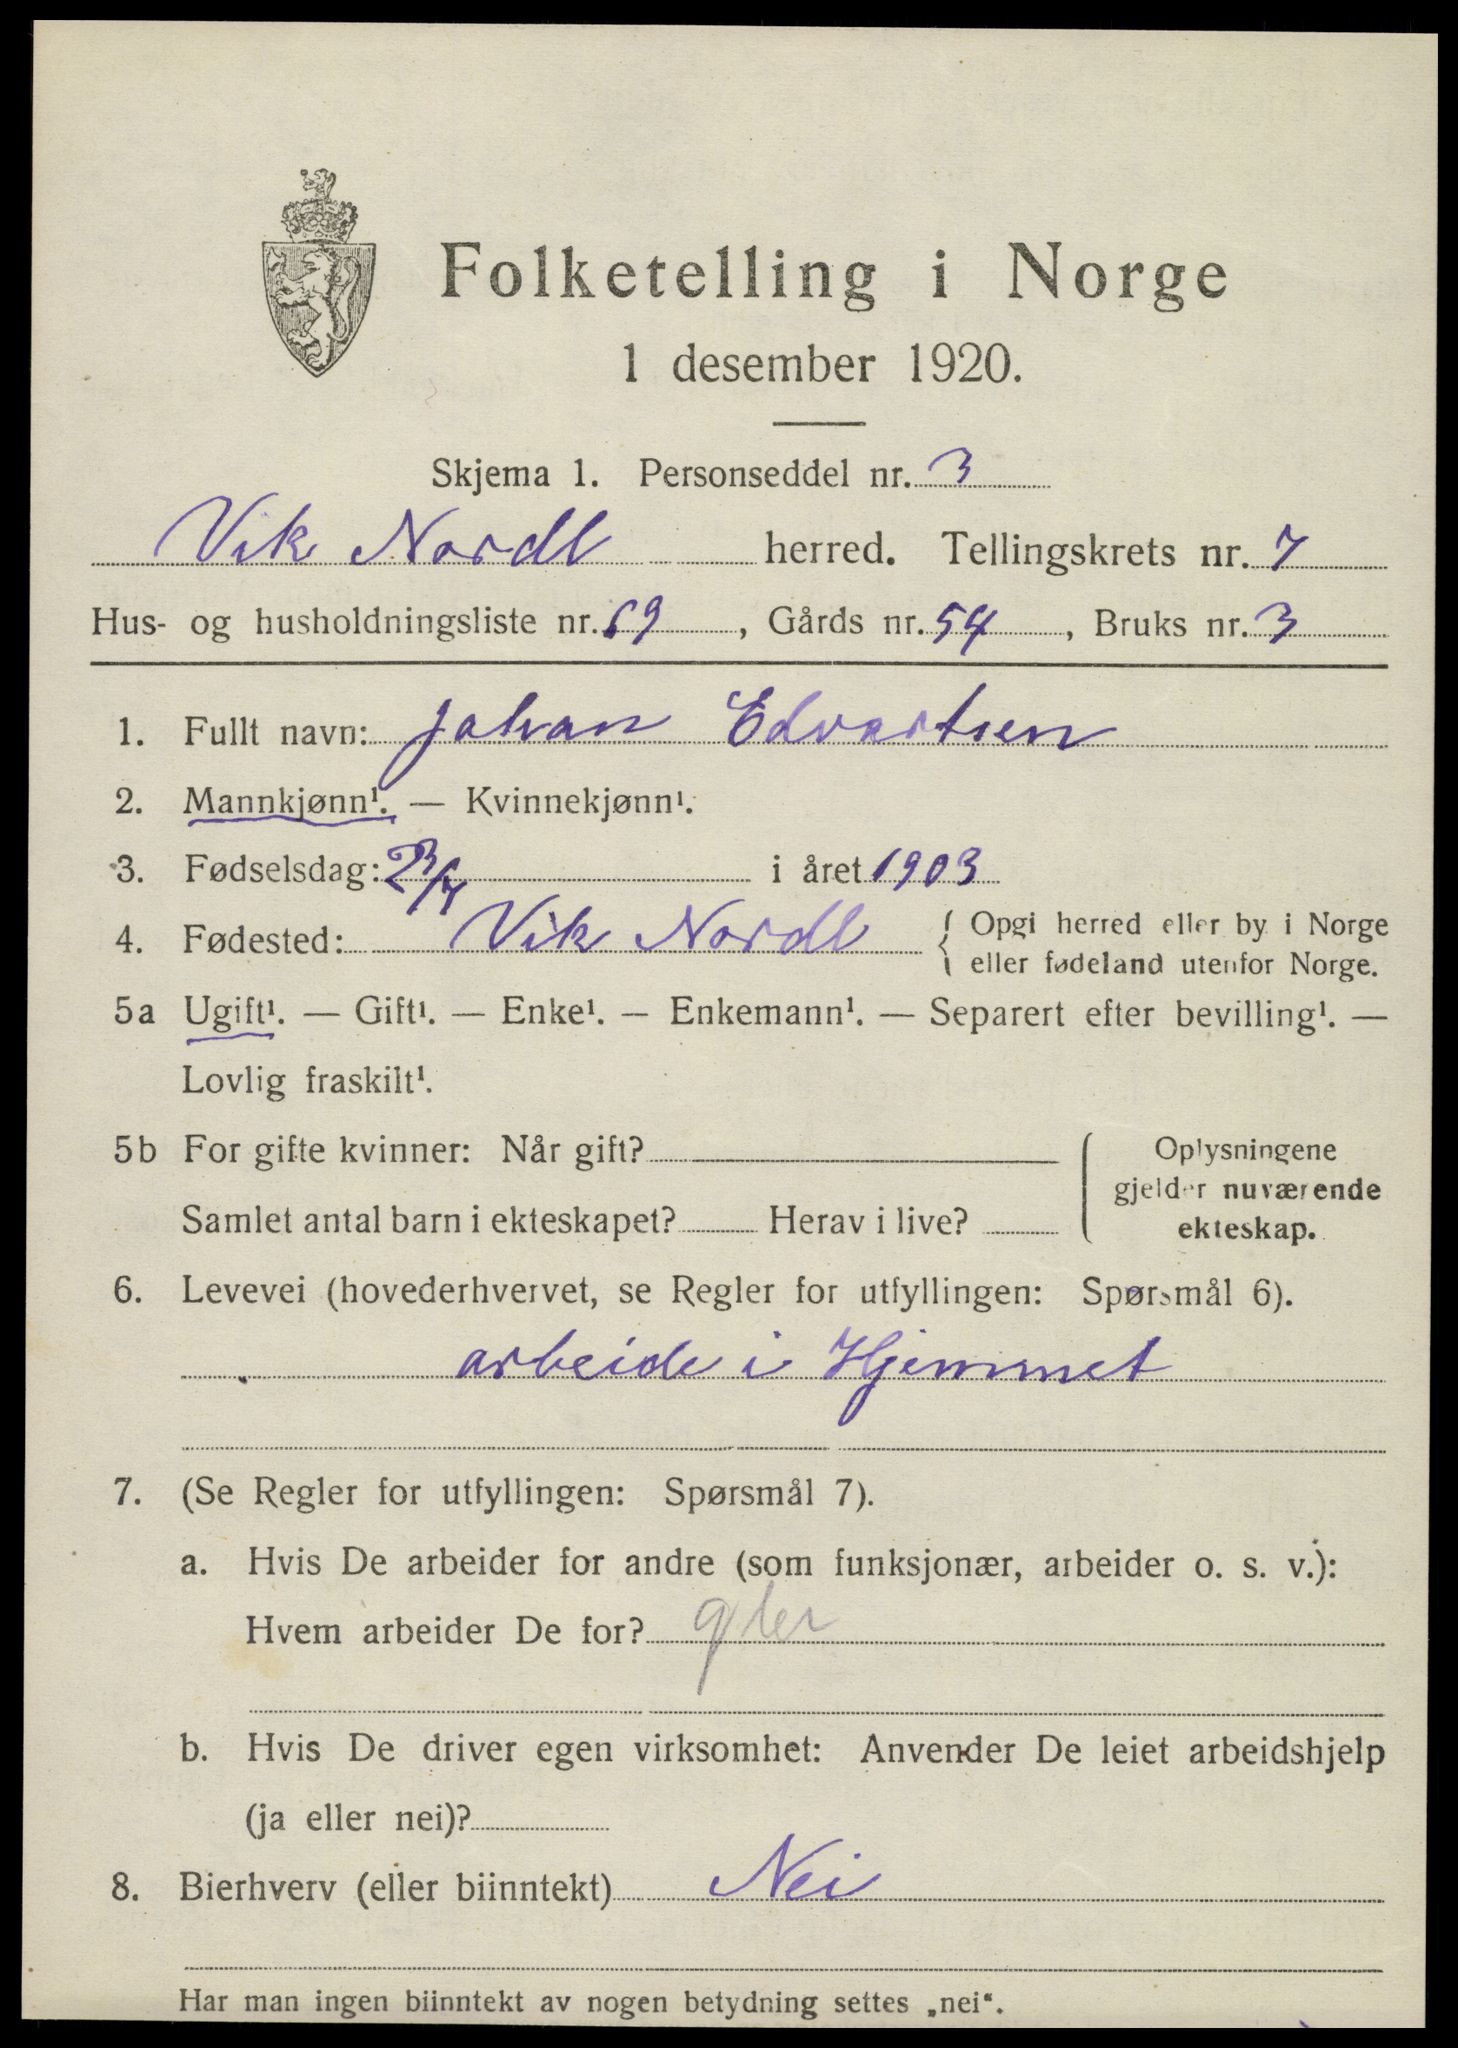 Folketelling i Norge
1 desember 1920.
Skjema 1. Personseddel nr. 3
Vik Nordl herred. Tellingskrets nr. 7
Hus- og husholdningsliste nr. 69, Gårds nr. 54, Bruks nr. 3
1. Fullt navn: Johan Edvartsen
2. Mannkjønn¹. — Kvinnekjønn¹.
3. Fødselsdag: 23/7 i året 1903
4. Fødested: Vik Nordl { Opgi herred eller by i Norge
eller fødeland utenfor Norge.
5a Ugift¹. — Gift¹. — Enke¹. — Enkemann¹. — Separert efter bevilling¹. —
Lovlig fraskilt¹.
5b For gifte kvinner: Når gift? { Oplysningene
gjelder nuværende
Samlet antal barn i ekteskapet? Herav i live? ekteskap.
6. Levevei (hovederhvervet, se Regler for utfyllingen: Spørsmål 6).
arbeide i Hjemmet
7. (Se Regler for utfyllingen: Spørsmål 7).
a. Hvis De arbeider for andre (som funksjonær, arbeider o. s. v.):
Hvem arbeider De for?
b. Hvis De driver egen virksomhet: Anvender De leiet arbeidshjelp
(ja eller nei)?
8. Bierhverv (eller biinntekt) Nei
Har man ingen biinntekt av nogen betydning settes „nei“.